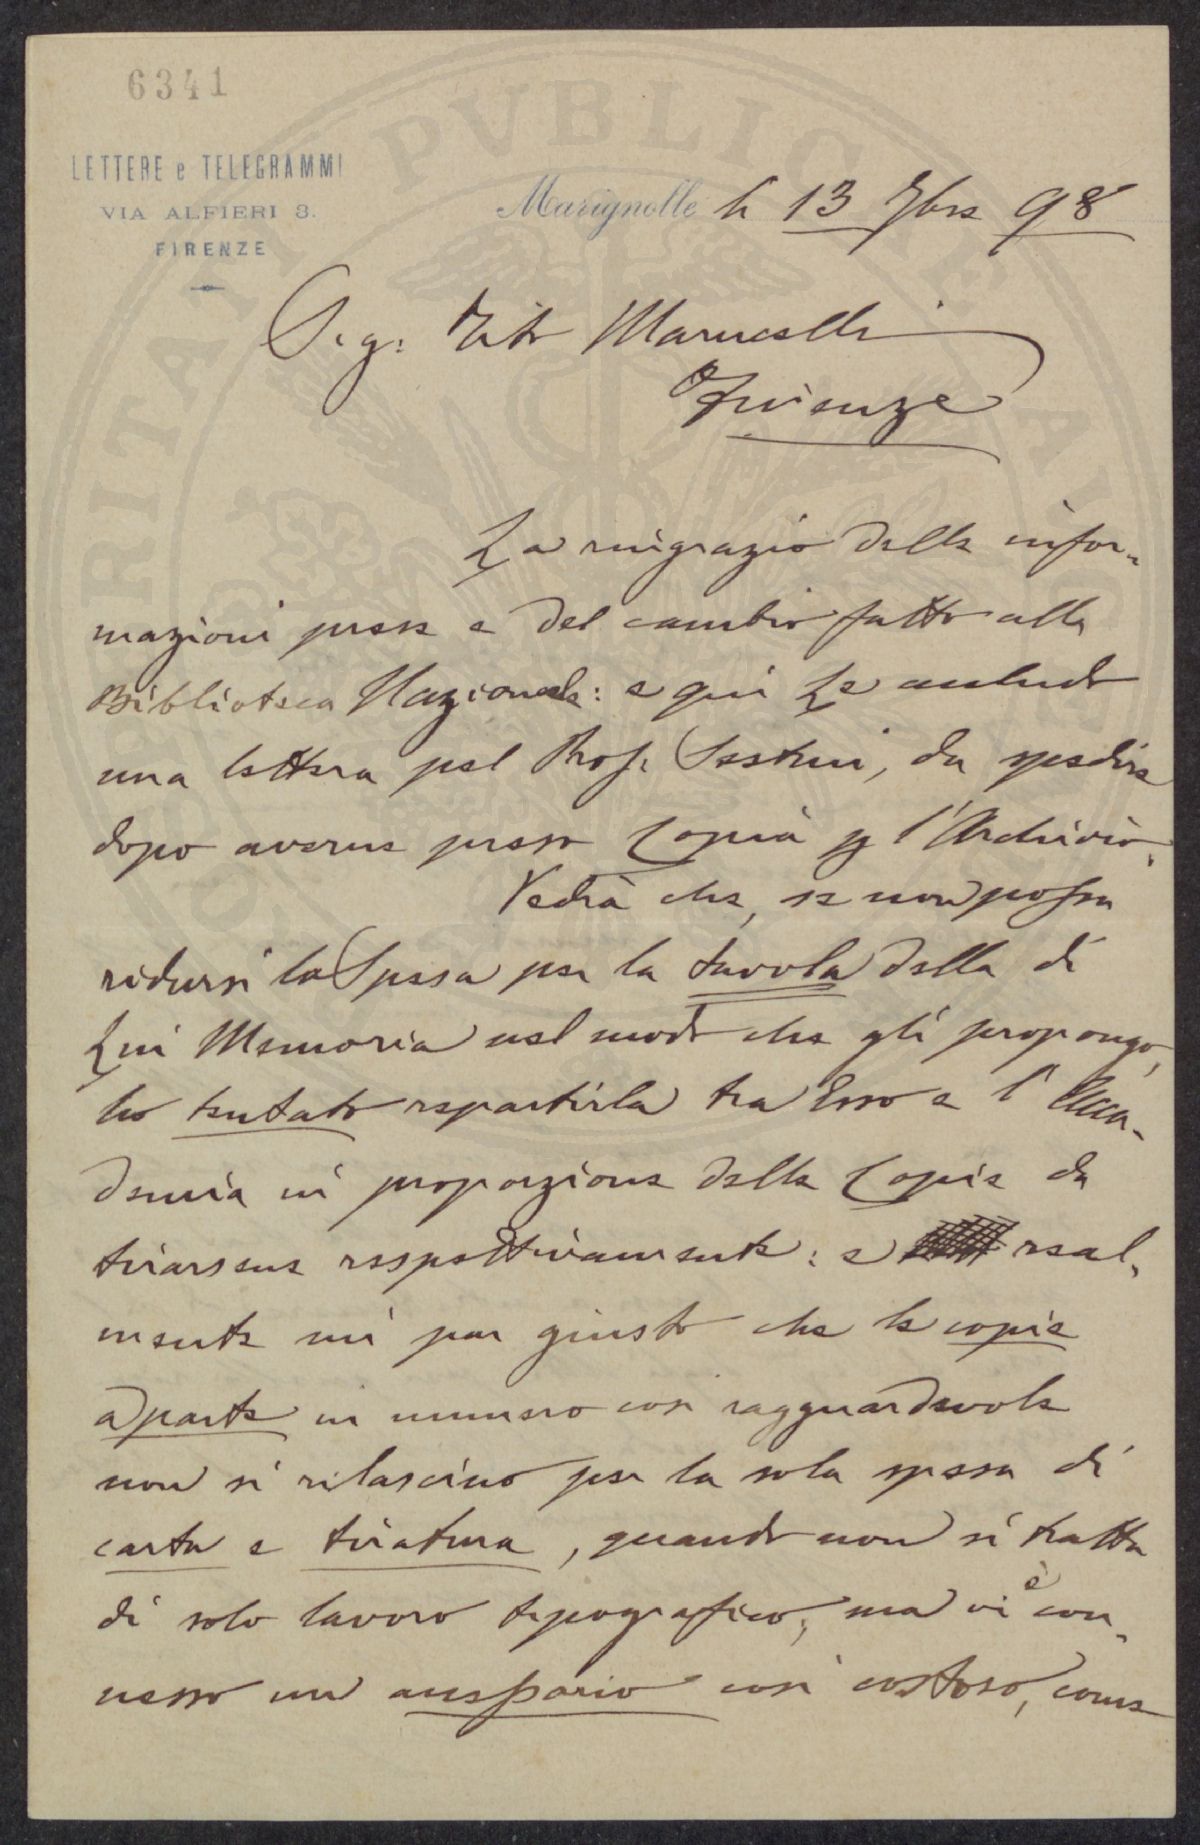 6341
LETTERE e TELEGRAMMI
VIA ALFIERI 3.
FIRENZE
Marignolle li 13 7bre 98
Sig: Tito Marucelli
Firenze
La ringrazio delle infor-
mazioni prese e del cambio fatto alla
Biblioteca Nazionale: e qui Le accludo
una lettera pel Prof. Sestini, da spedire
dopo averne preso Copia pg l'Archivio.
Vedrà che, se non possa
ridursi la Spesa per la tavola della di
Lui Memoria nel modo che gli propongo,
ho tentato repartirla tra Esso e l'Acca-
demia in proporzione delle Copie da
tirarsene respettivamente: e real-
mente mi par giusto che le copie
a parte in numero così ragguardevole
non si rilascino per la sola spesa di
carta e tiratura, quando non si tratta
di solo lavoro tipografico; ma vi è con-
nesso un accessorio così costoso, come